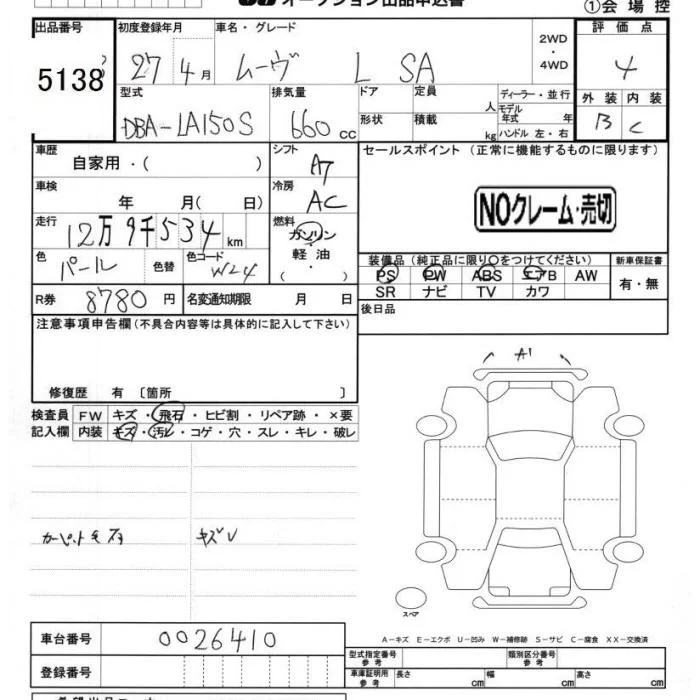 オークション出品申込書
①会場控
出品番号 初度登録年月 車名・グレード 2WD・4WD 評価点
5138 27年4月 ムーヴ L SA 4
型式 排気量 ドア 定員 人 ディーラー・並行 外装 内装
DBA-LA150S 660cc 形状 積載 kg モデル年式 年 B C
ハンドル 左・右
車歴 自家用・( ) シフト AT セールスポイント (正常に機能するものに限ります)
車検 年 月( 日) 冷房 AC
NOクレーム・売切
走行 12万9千534km 燃料 ガソリン・軽油・( )
色 パール 色替 色コード W24
装備品 (純正品に限り○をつけてください) 新車保証書
PS PW ABS エアB AW 有・無
SR ナビ TV カワ
R券 8780円 名変通知期限 月 日 後日品
注意事項申告欄(不具合内容等は具体的に記入して下さい)
修復歴 有 〔箇所 〕
A1
検査員記入欄 FW キズ・飛石・ヒビ割・リペア跡・×要
内装 キズ・汚レ・コゲ・穴・スレ・キレ・破レ
キズU
スペア
A-キズ E-エクボ U-凹み W-補修跡 S-サビ C-腐食 XX-交換済
車台番号 0026410
型式指定番号 参考 類別区分番号 参考
登録番号 車庫証明用 参考 長さ cm 幅 cm 高さ cm